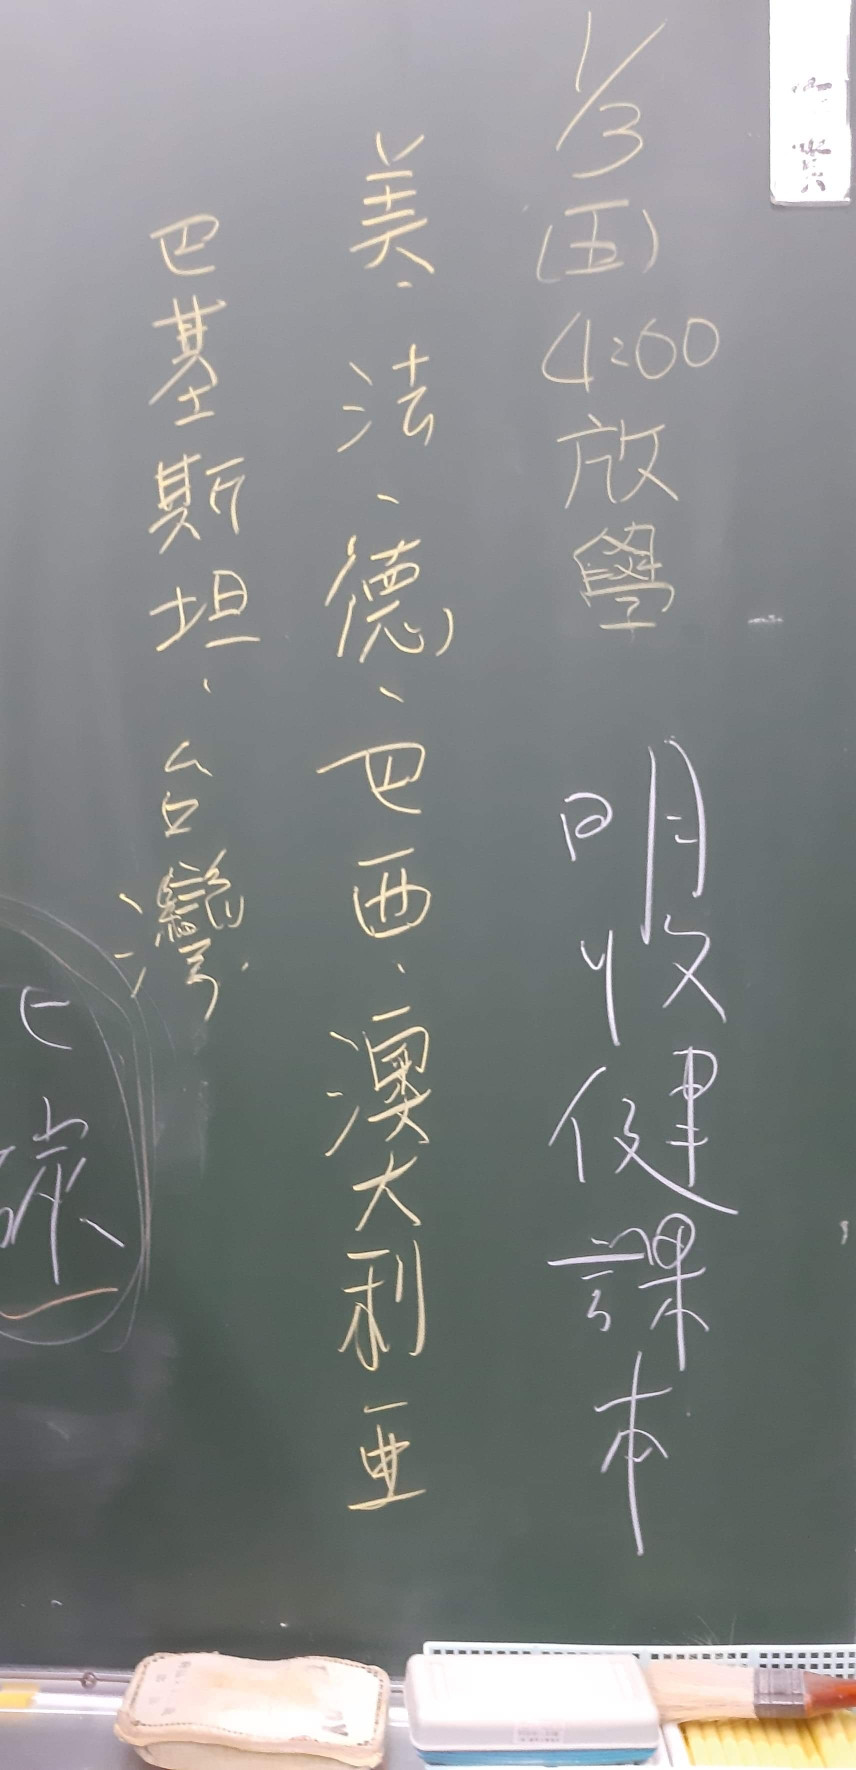 1/3(五)4:00放學
明收健課本
美、法、德、巴西、澳大利亞
巴基斯坦、台灣
碳